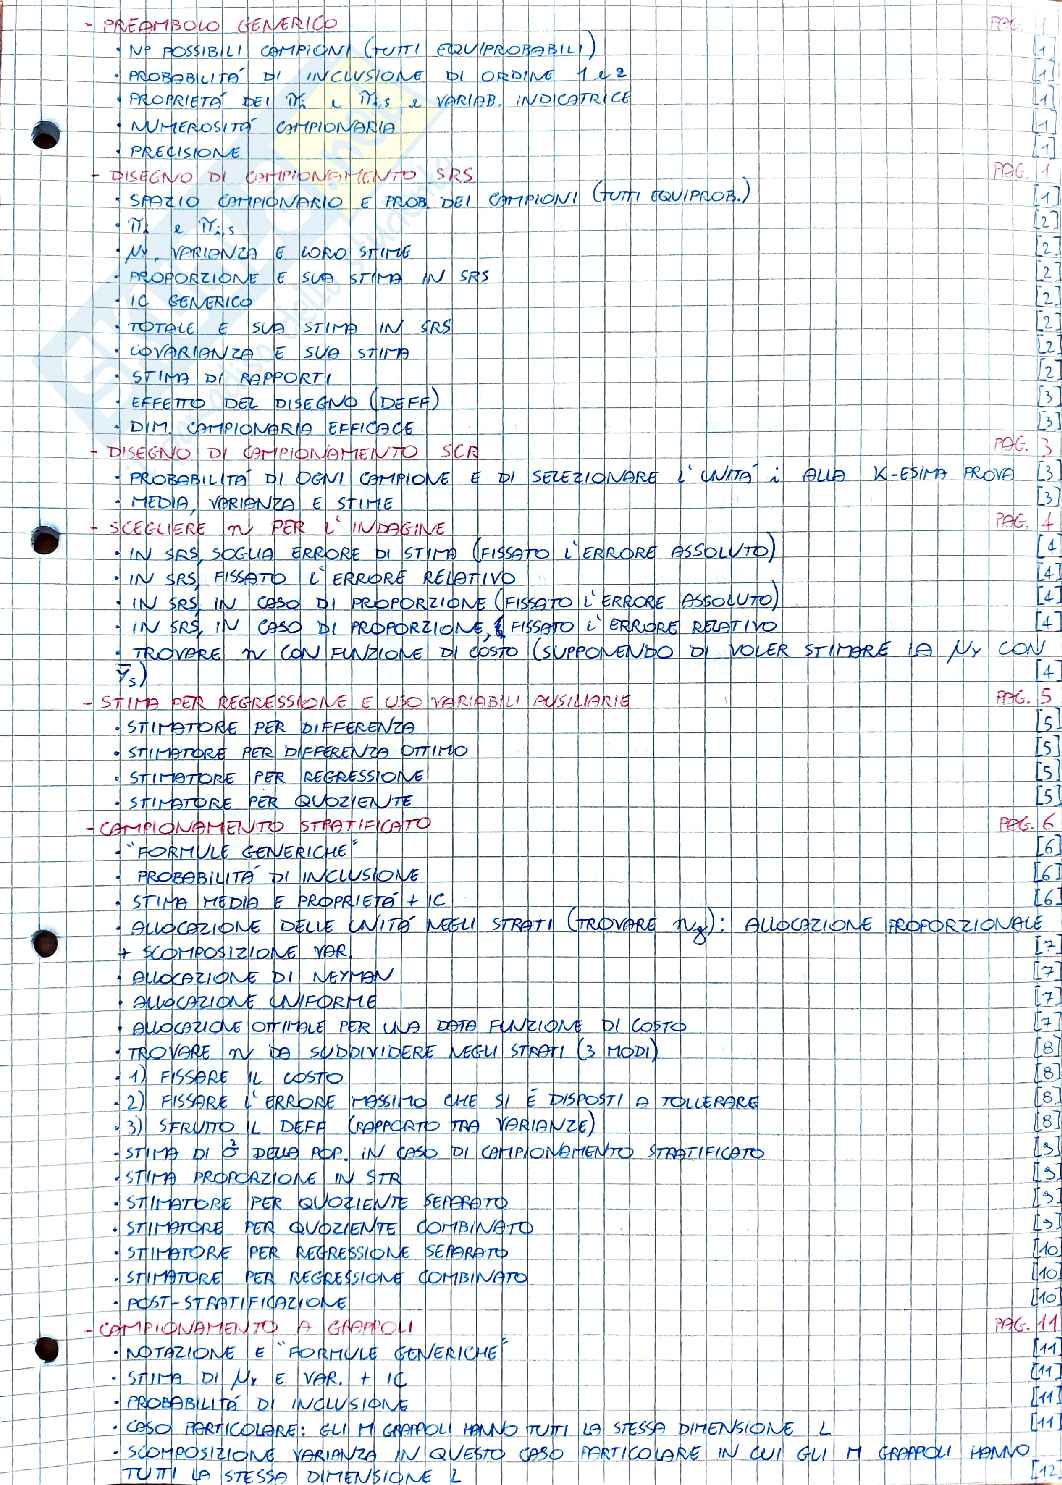 - PREAMBOLO GENERICO PAG. 1
· N° POSSIBILI CAMPIONI (TUTTI EQUIPROBABILI) [1]
· PROBABILITÁ DI INCLUSIONE DI ORDINE 1 e 2 [1]
· PROPRIETÁ DEI πi e πi,s e VARIAB. INDICATRICE [1]
· NUMEROSITÁ CAMPIONARIA [1]
· PRECISIONE [1]
- DISEGNO DI CAMPIONAMENTO SRS PAG. 1
· SPAZIO CAMPIONARIO E PROB. DEI CAMPIONI (TUTTI EQUIPROB.) [1]
· πi e πi,s [2]
· μY, VARIANZA E LORO STIME [2]
· PROPORZIONE E SUA STIMA IN SRS [2]
· IC GENERICO [2]
· TOTALE E SUA STIMA IN SRS [2]
· COVARIANZA E SUA STIMA [2]
· STIMA DI RAPPORTI [2]
· EFFETTO DEL DISEGNO (DEFF) [3]
· DIM. CAMPIONARIA EFFICACE [3]
- DISEGNO DI CAMPIONAMENTO SCR PAG. 3
· PROBABILITÁ DI OGNI CAMPIONE E DI SELEZIONARE L'UNITÁ i ALLA K-ESIMA PROVA [3]
· MEDIA, VARIANZA E STIME [3]
- SCEGLIERE n PER L'INDAGINE PAG. 4
· IN SRS, SOGLIA ERRORE DI STIMA (FISSATO L'ERRORE ASSOLUTO) [4]
· IN SRS, FISSATO L'ERRORE RELATIVO [4]
· IN SRS, IN CASO DI PROPORZIONE (FISSATO L'ERRORE ASSOLUTO) [4]
· IN SRS, IN CASO DI PROPORZIONE, FISSATO L'ERRORE RELATIVO [4]
· TROVARE n CON FUNZIONE DI COSTO (SUPPONENDO DI VOLER STIMARE LA μY CON
ȳs) [4]
- STIMA PER REGRESSIONE E USO VARIABILI AUSILIARIE PAG. 5
· STIMATORE PER DIFFERENZA [5]
· STIMATORE PER DIFFERENZA OTTIMO [5]
· STIMATORE PER REGRESSIONE [5]
· STIMATORE PER QUOZIENTE [5]
- CAMPIONAMENTO STRATIFICATO PAG. 6
· "FORMULE GENERICHE" [6]
· PROBABILITÁ DI INCLUSIONE [6]
· STIMA MEDIA E PROPRIETÁ + IC [6]
· ALLOCAZIONE DELLE UNITÁ NEGLI STRATI (TROVARE ng): ALLOCAZIONE PROPORZIONALE
+ SCOMPOSIZIONE VAR. [7]
· ALLOCAZIONE DI NEYMAN [7]
· ALLOCAZIONE UNIFORME [7]
· ALLOCAZIONE OTTIMALE PER UNA DATA FUNZIONE DI COSTO [7]
· TROVARE n DA SUDDIVIDERE NEGLI STRATI (3 MODI) [8]
· 1) FISSARE IL COSTO [8]
· 2) FISSARE L'ERRORE MASSIMO CHE SI É DISPOSTI A TOLLERARE [8]
· 3) SFRUTTO IL DEFF (RAPPORTO TRA VARIANZE) [8]
· STIMA DI σ² DELLA POP. IN CASO DI CAMPIONAMENTO STRATIFICATO [9]
· STIMA PROPORZIONE IN STR [9]
· STIMATORE PER QUOZIENTE SEPARATO [9]
· STIMATORE PER QUOZIENTE COMBINATO [9]
· STIMATORE PER REGRESSIONE SEPARATO [10]
· STIMATORE PER REGRESSIONE COMBINATO [10]
· POST-STRATIFICAZIONE [10]
- CAMPIONAMENTO A GRAPPOLI PAG. 11
· NOTAZIONE E "FORMULE GENERICHE" [11]
· STIMA DI μY E VAR. + IC [11]
· PROBABILITÁ DI INCLUSIONE [11]
· CASO PARTICOLARE: GLI M GRAPPOLI HANNO TUTTI LA STESSA DIMENSIONE L [11]
· SCOMPOSIZIONE VARIANZA IN QUESTO CASO PARTICOLARE IN CUI GLI M GRAPPOLI HANNO
TUTTI LA STESSA DIMENSIONE L [12]